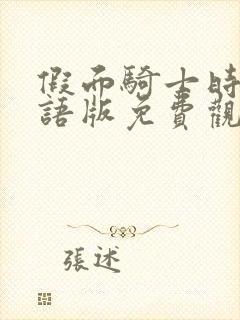 假面騎士時
語版免費觀
張述